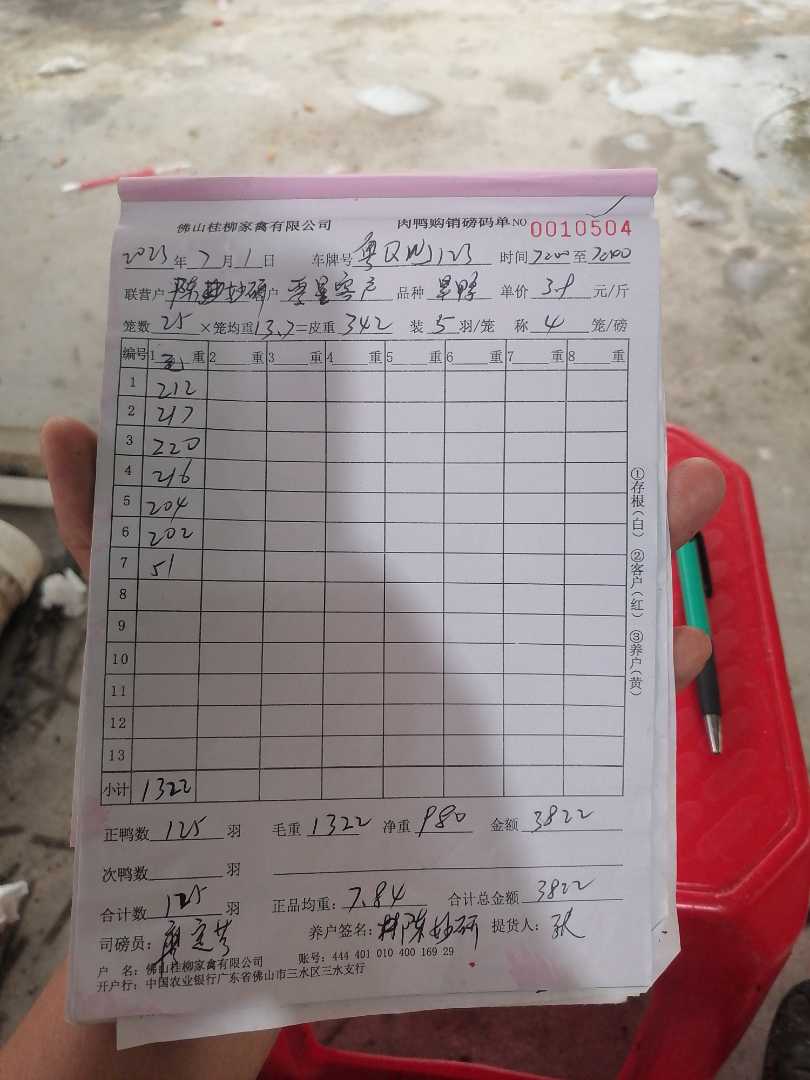 佛山桂柳家禽有限公司 肉鸭购销磅码单 NO 0010504
2023年7月1日 车牌号 粤 123 时间 7:00 至
联营户 陈 妙研 户 零星客户 品种 旱鸭 单价 3.9 元/斤
笼数 25 ×笼均重 13.7 =皮重 342 装 5 羽/笼 称 4 笼/磅
编号 1 毛 重 2 重 3 重 4 重 5 重 6 重 7 重 8 重
1 212
2 217
3 220
4 216
5 204
6 202
7 51
8
9
10
11
12
13
小计 1322
正鸭数 125 羽 毛重 1322 净重 980 金额 3822
次鸭数 羽
合计数 125 羽 正品均重: 7.84 合计总金额 3822
司磅员: 廖 养户签名: 陈妙研 提货人: 张
户 名: 佛山桂柳家禽有限公司 账号: 444 401 010 400 169 29
开户行: 中国农业银行广东省佛山市三水区三水支行
①存根(白) ②客户(红) ③养户(黄)